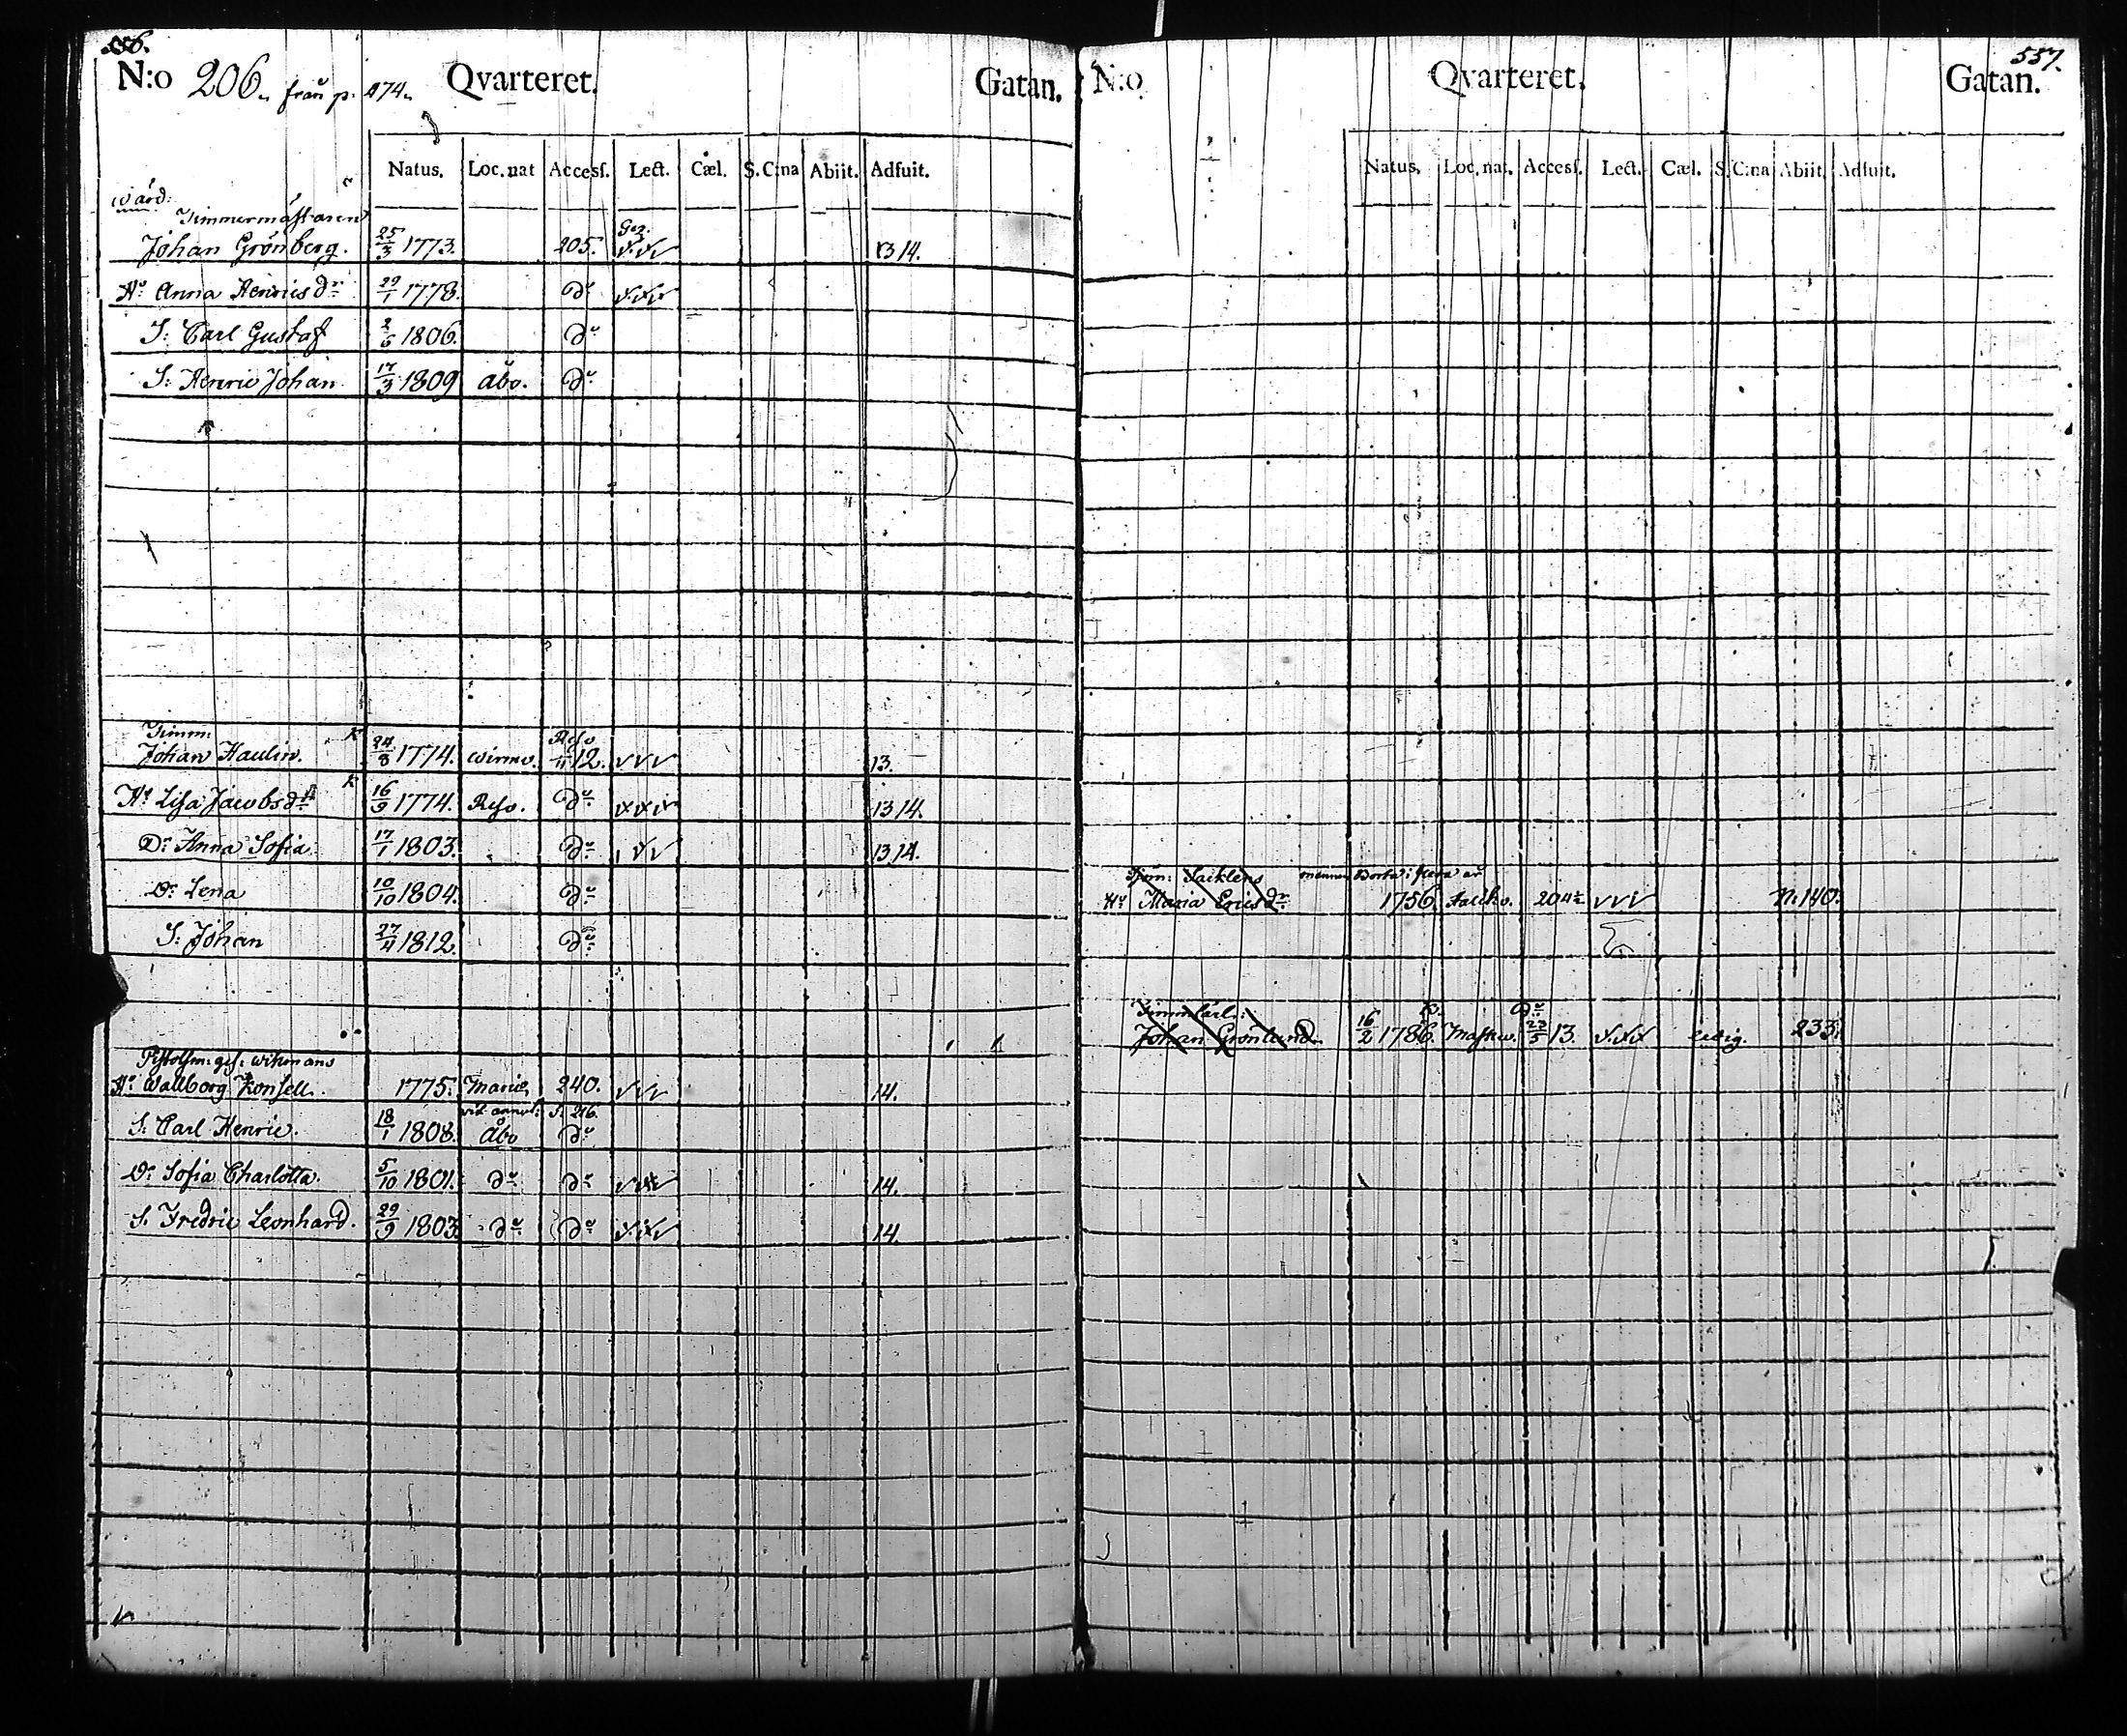 556.
N:o 206. från p. 474. Qvarteret. Gatan.
Natus. Loc. nat Accesſ. Lect. Cæl. S. C:na Abiit. Adfuit.
Wärd:
Timmermästaren
Johan Grönberg. 25/3 1773. 205. 13 14.
Hu Anna Henricsdr 29/1 1778. do
S: Carl Gustaf 2/6 1806. do
S: Henric Johan 17/3 1809 Åbo. do
Timm:
Johan Haulin. 24/8 1774. Wirmo. Reso /11 12. 13.
Hu Lisa Jacobsdr 16/9 1774. Reso. do 13 14.
Dr Anna Sofia. 17/1 1803. do 13 14.
Dr Lena 10/10 1804. do
S: Johan 27/4 1812. do
Wikmans
Hu Wallborg Konsell. 1775. Marie 240. 14.
S. 216.
S: Carl Henric. 18/1 1808. Åbo do
Dr Sofia Charlotta. 5/10 1801. do do 14.
S. Fredric Leonhard. 29/9 1803. do do 14.
557.
N:o Qvarteret. Gatan.
Natus. Loc. nat. Accesſ. Lect. Cæl. S. C:na Abiit. Adfuit.
mannen borta i flera år
Hu Maria Ericsdr 1756. 204 N. 140.
do
Johan Grönlund 16/2 1786. Masku. 23/5 13. ledig. 233.